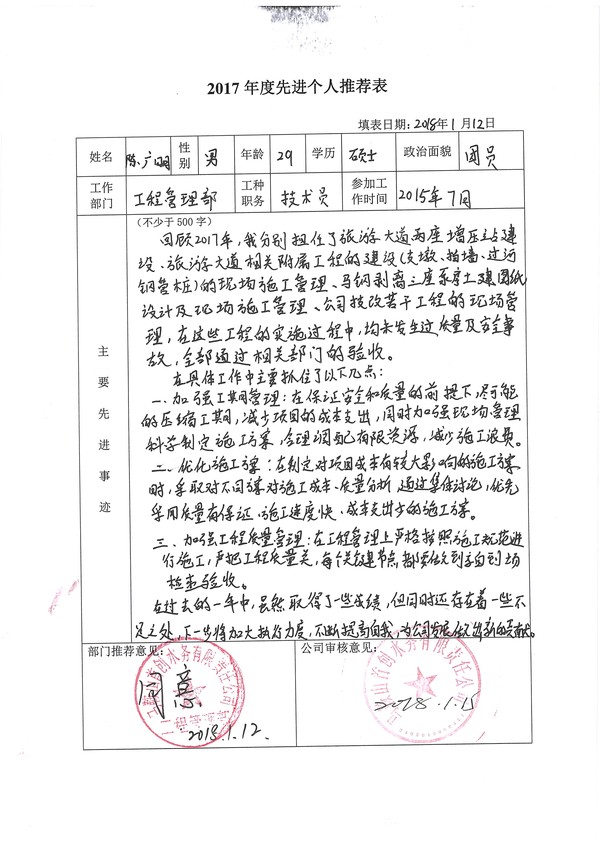 2017 年度先进个人推荐表
填表日期：2018年1月12日
姓名 陈广明 性别 男 年龄 29 学历 硕士 政治面貌 团员
工作部门 工程管理部 工种职务 技术员 参加工作时间 2015年7月
主要先进事迹
(不少于500字)
回顾2017年，我分别担任了旅游大道两座增压站建
设、旅游大道相关附属工程的建设(支墩、挡墙、过河
钢管桩)的现场施工管理、马钢剥离三座泵房土建图纸
设计及现场施工管理、公司技改若干工程的现场管
理，在这些工程的实施过程中，均未发生过质量及安全事
故，全部通过相关部门的验收。
在具体工作中主要抓住了以下几点：
一、加强工期管理：在保证安全和质量的前提下，尽可能
的压缩工期，减少项目的成本支出，同时加强现场管理
科学制定施工方案，合理调配有限资源，减少施工浪费。
二、优化施工方案：在制定对项目成本有较大影响的施工方案
时，采取对不同方案对施工成本、质量分析，通过集体讨论，优先
采用质量有保证、施工速度快、成本支出少的施工方案。
三、加强工程质量管理：在工程管理上严格按照施工规范进
行施工，严把工程质量关，每个关键节点都要做到亲自到场
检查验收。
在过去的一年中，虽然取得了一些成绩，但同时还存在着一些不
足之处，下一步将加大执行力度，不断提高自我，为公司发展做出新的贡献。
部门推荐意见：
同意
2018.1.12
公司审核意见：
2018.1.15
首创水务有限责任公司
工程管理部
马鞍山首创水务有限责任公司